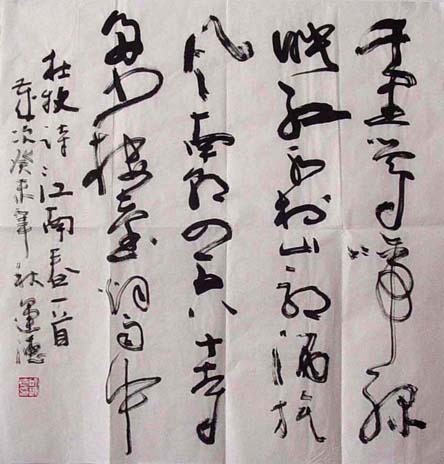 千里莺啼绿
映红水村山郭酒旗
风南朝四百八十寺
多少楼臺烟雨中
杜牧诗江南春一首
岁次癸未年秋